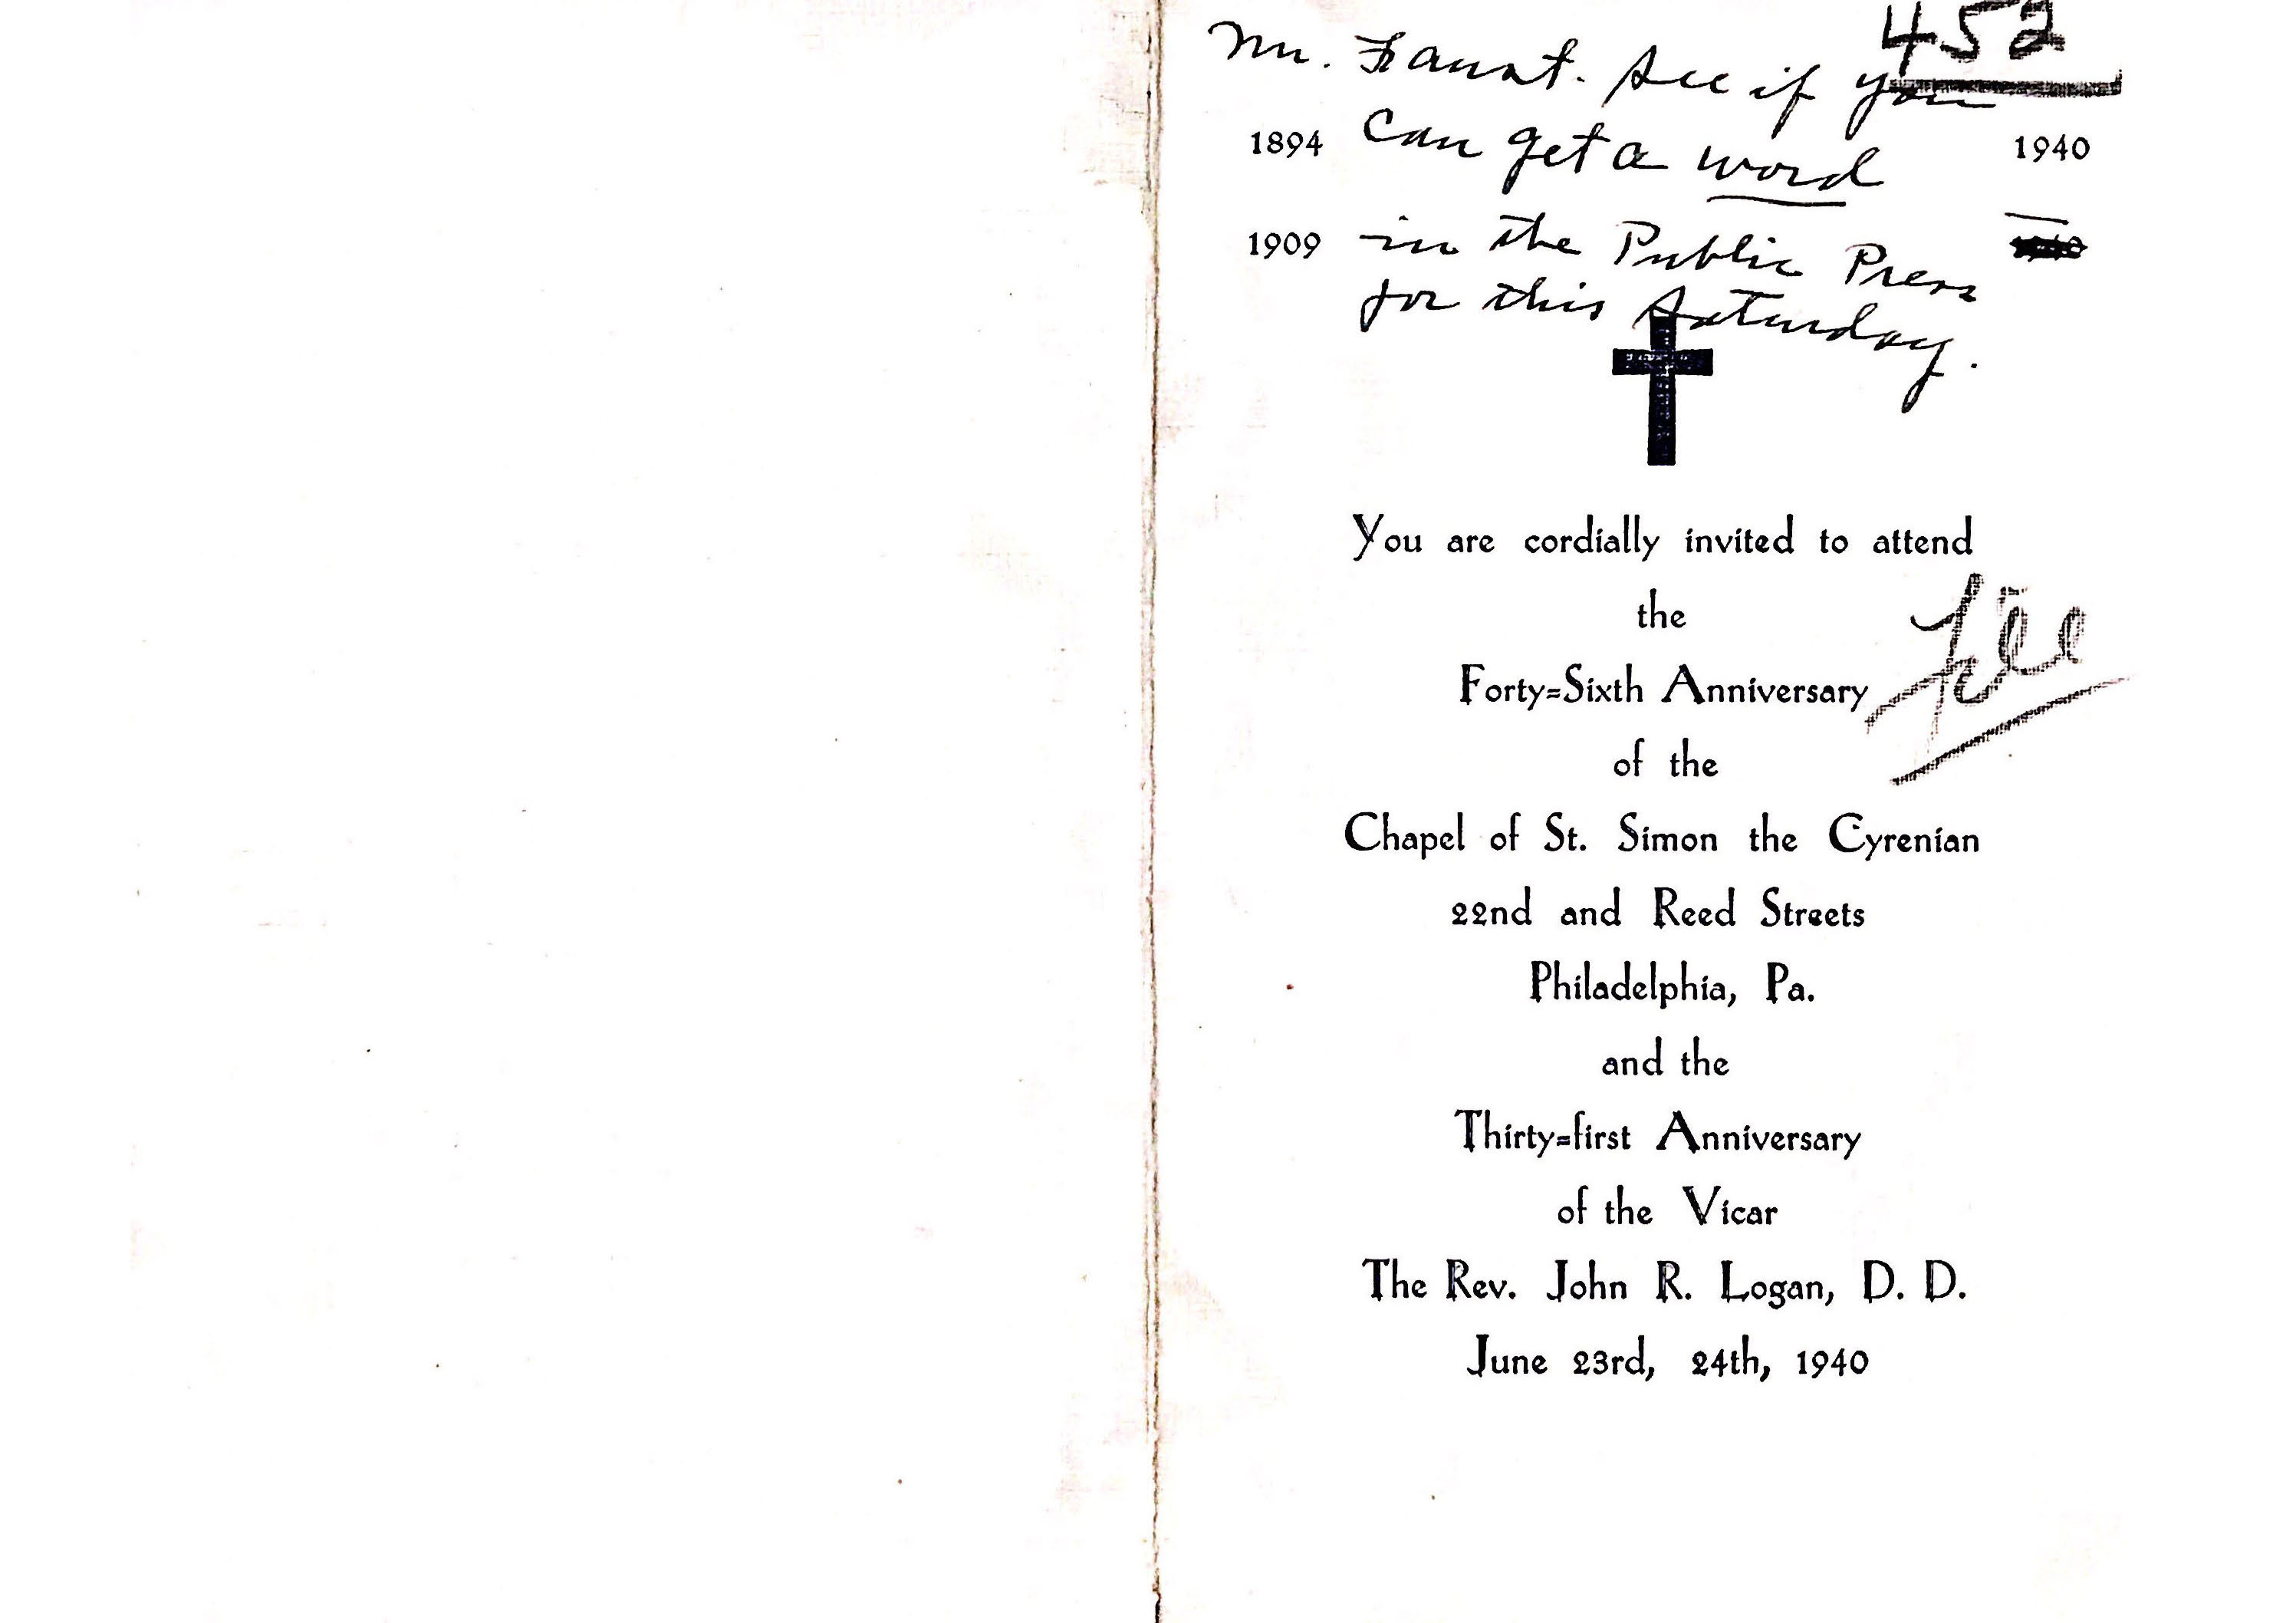 452
Mr. Faust. See if you
1894 Can get a word 1940
1909 in the Public Press
for this Saturday.
You are cordially invited to attend
the
Forty=Sixth Anniversary
of the
Chapel of St. Simon the Cyrenian
22nd and Reed Streets
Philadelphia, Pa.
and the
Thirty=first Anniversary
of the Vicar
The Rev. John R. Logan, D. D.
June 23rd, 24th, 1940